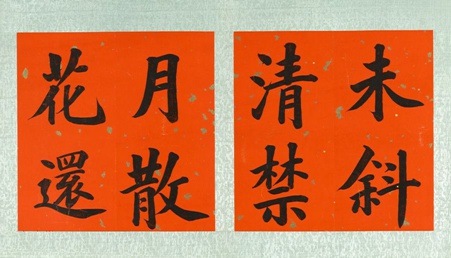 未斜
清禁
月散
花還